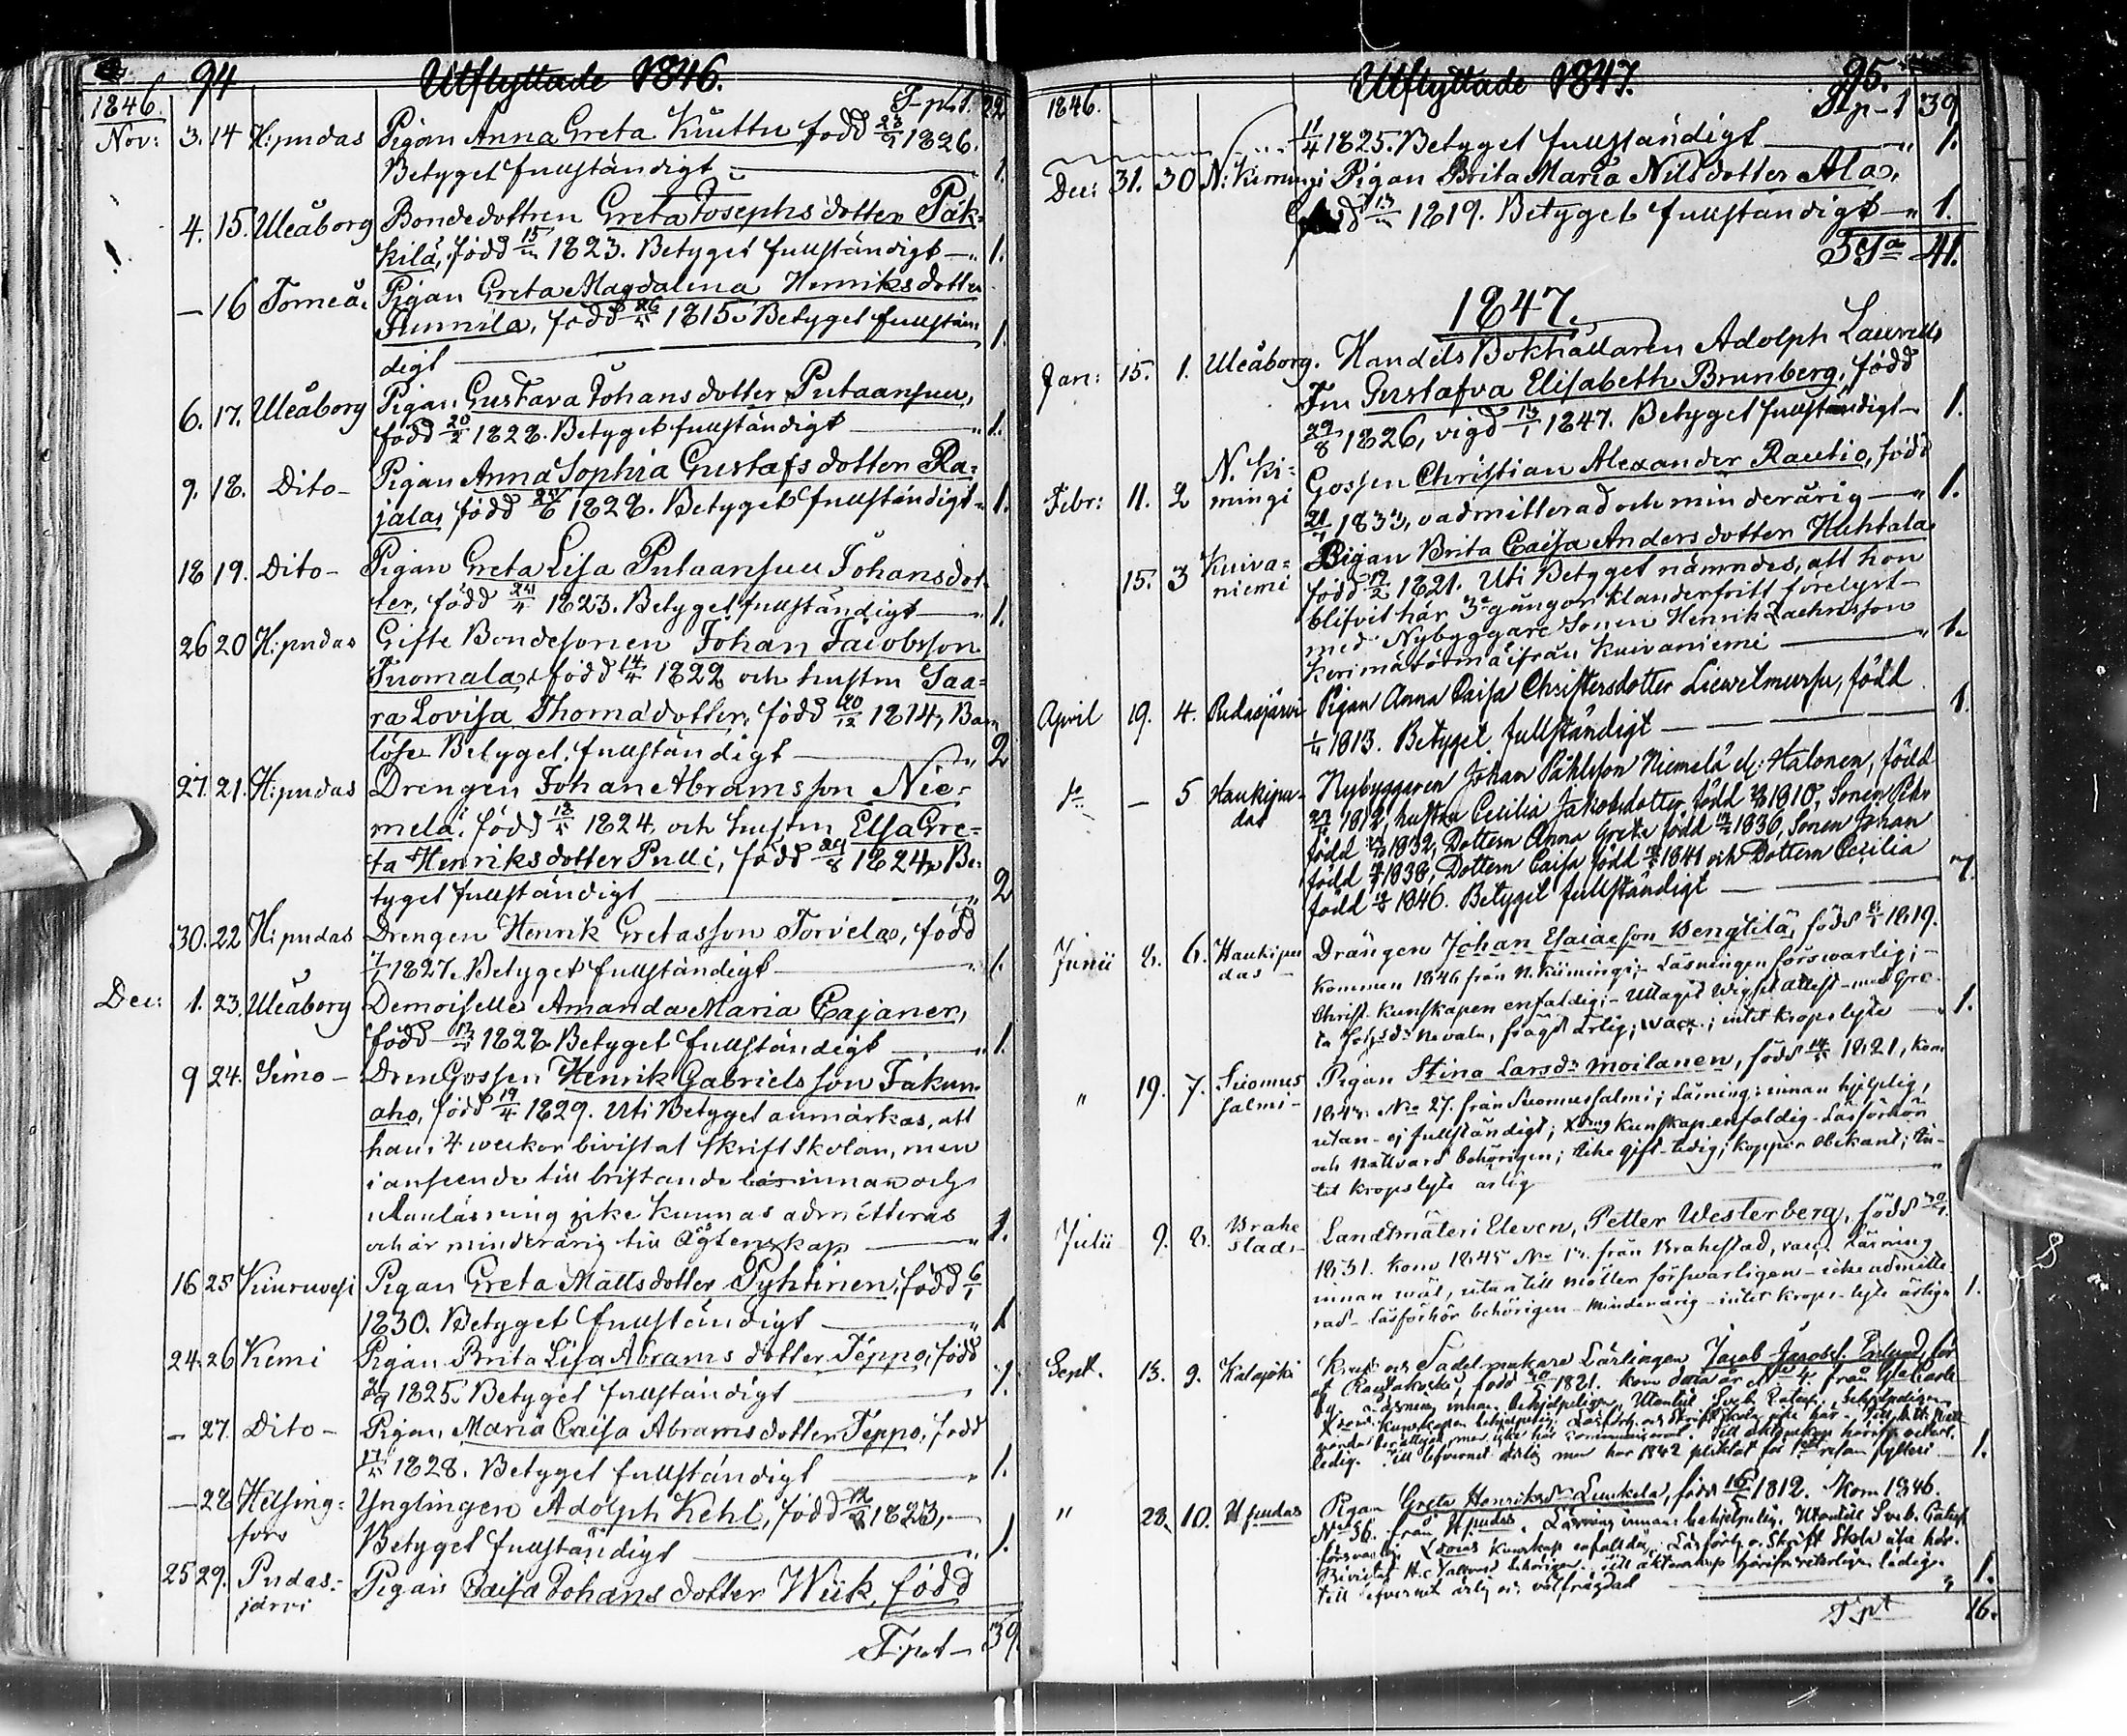 94 Utflyttade 1846.
1846. T-pt. 22
Nov: 3. 14 H:pudas Pigan Anna Greta Knuttu född 23/9 1826.
Betyget fullständigt — 1.
4. 15. Uleåborg Bondedottren Greta Josephsdotter Pák-
kilá, född 15/ 1823. Betyget fullständigt — 1.
— 16 Torneå. Pigan Greta Magdalena Henriksdotter
född 26/ 1815. Betyget fullstän
digt — 1.
6. 17. Uleåborg Pigan Gustava Johansdotter Putaansuu,
född 20/2 1828. Betyget fullständigt — 1.
9. 18. Dito - Pigan Anna Sophia Gustafsdotter Ra-
jala, född /6 1828. Betyget fullständigt 1.
18 19. Dito - Pigan Greta Lisa Putaansuu Johansdot-
ter, född 24/4 1823. Betyget fullständigt — 1.
26 20 H:pudas Gifte Bondesonen Johan Jacobsson
Tuomala, född 14/4 1822 och hustru Saa-
ra Lovisa Thomadotter, född 20/12 1814, Barn
löse Betyget fullständigt — 2
27. 21. H:pudas Drengen Johan Abramsson Nie-
melä, född 18/ 1824, och hustru Elsa Gre-
ta Henriksdotter Pulli, född 29/8 1824, Be-
tyget fullständigt — 2
30. 22 H:pudas Drengen Henrik Gretasson Torvela, född
7/1 1827. Betyget fullständigt — 1.
Dec: 1. 23. Uleåborg Demoiselle Amanda Maria Cajaner,
född 13/ 1828. Betyget fullständigt — 1.
9 24. Simo - Dren Gossen Henrik Gabrielsson Jakun
aho, född 19/4 1829. Uti Betyget anmärkas, att
han i 4 weckor bivistat Skriftskolan, men
i anseende till bristande innan och
utanläsning icke kunnas admitteras
och är minderårig till Ägtenskap — 1.
16 25 Kiuruvesi Pigan Greta Mattsdotter Pyhtinen, född 6/1
1830. Betyget fullständigt — 1
24. 26 Kemi Pigan Brita Lisa Abramsdotter Teppo, född
/9 1825. Betyget fullständigt — 1.
— 27. Dito - Pigan Maria Caisa Abramsdotter Teppo, född
17/ 1828. Betyget fullständigt — 1.
— 28 Helsing- Ynglingen Adolph Kehl, född 12/ 1823, —
fors Betyget fullständigt — 1.
25 29. Pudas- Pigan Caisa Johansdotter Wiik, född
järvi
T.pt — 39.
Utflyttade 1847. 95.
1846. T.p-t 39
11/4 1825. Betyget fullständigt — 1.
Dec: 31. 30 N:Kiimingi Pigan Brita Maria Nilsdotter Ala,
född 13/ 1819. Betyget fullständigt — 1.
S:a 41.
1847.
Jan: 15. 1. Uleåborg. Handels Bokhållaren Adolph Laurells
Fru Gustafva Elisabeth Brunberg, född
29/8 1826, vigd /1 1847. Betyget fullständigt — 1.
Febr: 11. 2 N. Ki- Gossen Christian Alexander Rautio, född
mingi 21/ 1833, oadmitterad och minderårig — 1.
15. 3 Kuiva- Pigan Brita Caisa Andersdotter Huhtala
niemi född 12/2 1821. Uti Betyget nämndes, att hon
blifvit här 3:e gångor klanderfritt förelyst
med Nybyggare Sonen Henrik Zachrisson
ifrån Kuivaniemi — 1.
April 19. 4. Pudasjärvi Pigan Anna Caisa Christersdotter, född
1813. Betyget fullständigt — 1.
d:o — 5 Haukipu- Nybyggaren Johan Påhlsson Niemelä el: Halonen, född
das 27/ 1812, hustru Cecilia Jakobsdotter född 1810, Sonen Pehr
född 1832, Dottern Anna Greta född 1836, Sonen Johan
född 1838, Dottern Caisa född 1841 och Dottern Cecilia
född 1846. Betyget fullständigt — 7.
Junii 8. 6. Haukipu Drängen Johan Esaiasson Wengtilä, född 1819.
das - Kommen 1846 från N.Kiimingi; - Läsningen försvarlig; -
Christ. kunskapen enfaldig; - Uttagit Wigsel attest - med Gre
ta ärlig; vacc.; intet kropslyte — 1.
" 19. 7. Suomus Pigan Stina Larsd:r Moilanen, född 14/ 1821, kom
salmi - No 27. från Suomussalmi; Läsning: innan hjelplig,
utan - ej fullständigt; Kunskap enfaldig - Läsförhör
och Nattvard behörigen; icke gift - ledig; koppor obekant; in-
tet kropslyte ärlig
Julii 9. 8. Brahe Landtmäteri Eleven, Petter Westerberg, född
stad - 1831. kom 1845 No från Brahestad, vacc. Läsning
innan wäl, utantill försvarligen - icke admitte
rad - Läsförhör behörigen - Minderårig - intet krops-lyte ärlig 1.
Sept. 13. 9. Kalajoki och Sadelmakare Lärlingen Jacob Jacobs.
född 1821. kom No 4. från
Läsning innan behjelpligen, Utantill
Kunskapen behjelplig,
ledig. Till lefvernet ärlig men har 1842 pliktat för fylleri — 1.
" 28. 10. H pudas Pigan Greta Henriksd:r Luukela, född 16/ 1812. Kom 1846.
No 36. från H pudas. Läsning innan behjelplig. Utantill
försvarlig. Kunskap enfaldig. Läsförh. o. Skrift Skola
Bevistat H. Nattvard behörigen. Till äktenskap ledig.
Till lefvernet ärlig och välfrägdad — 1.
T.pt 16.